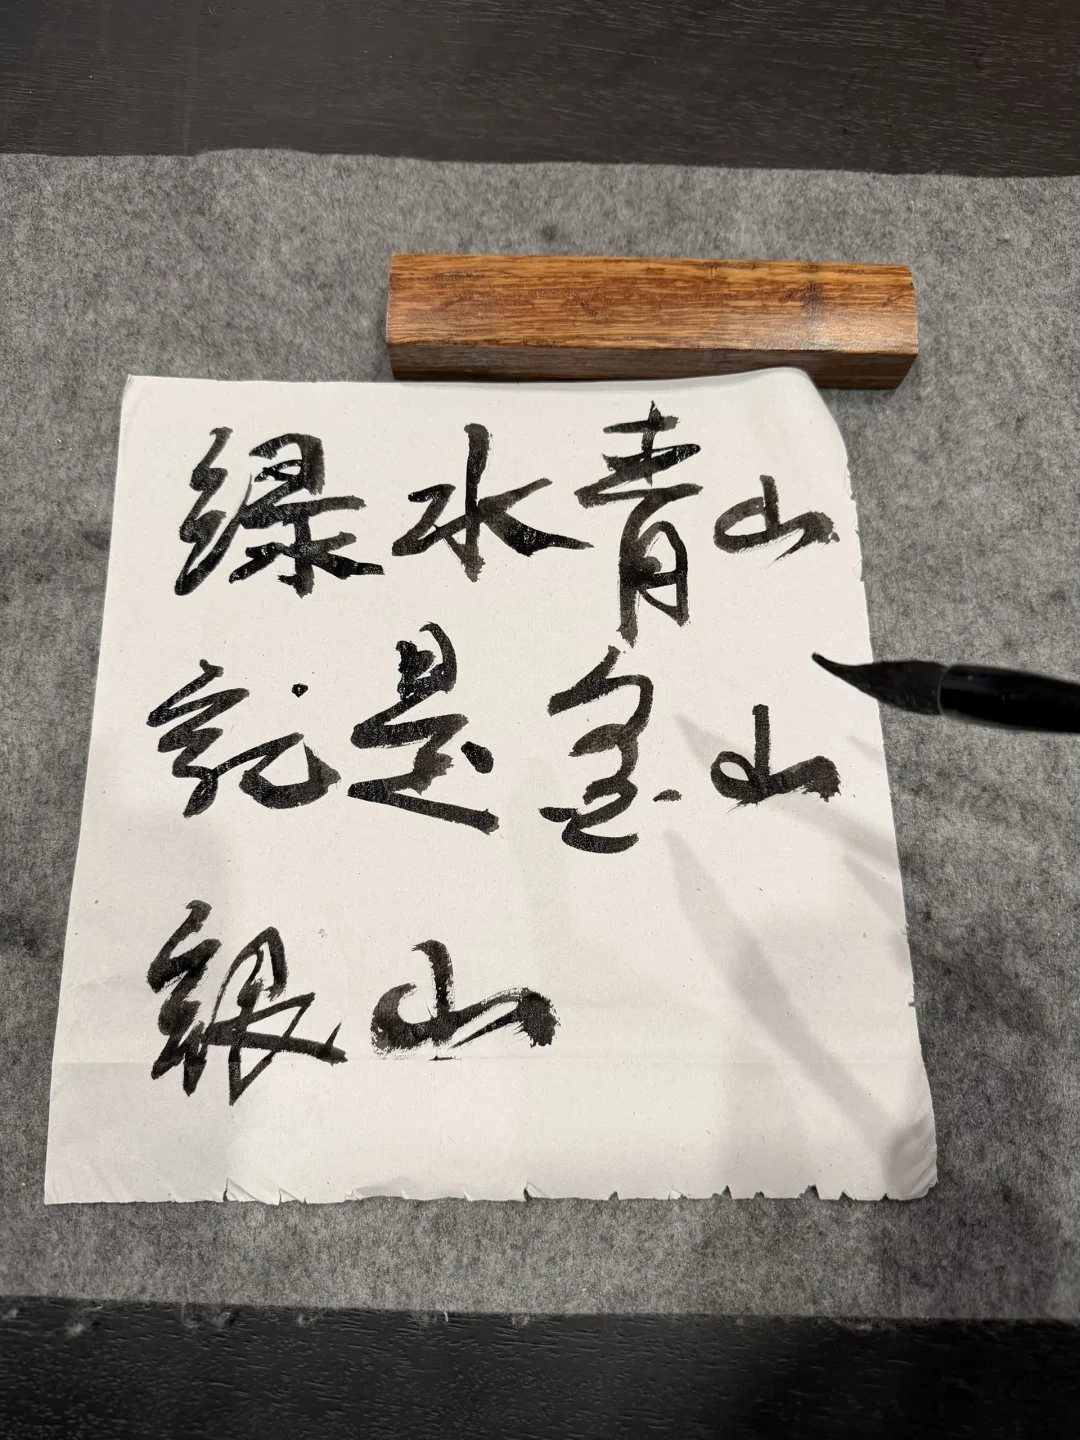 绿水青山
就是金山
银山